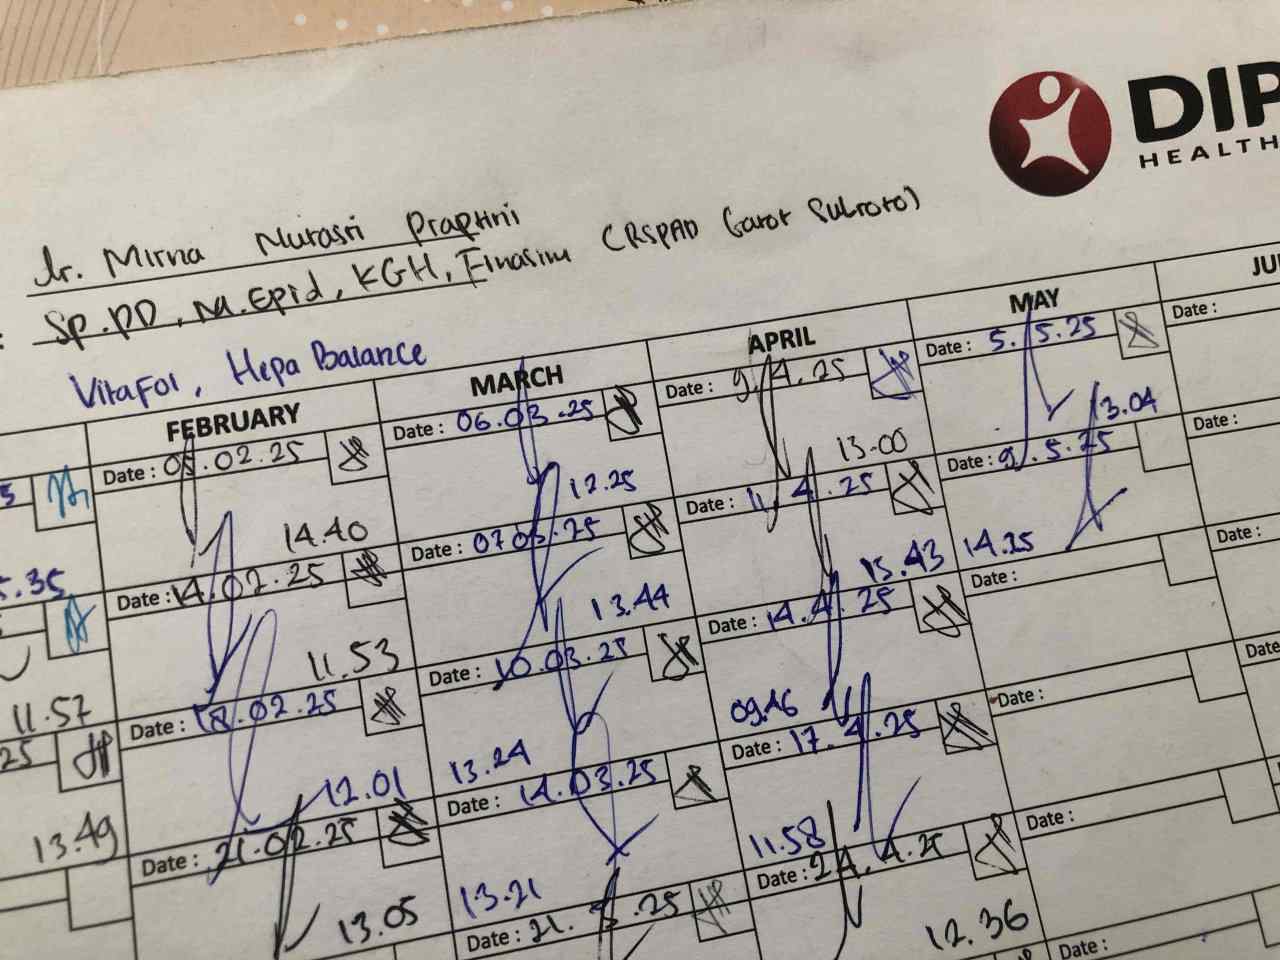 DIP
HEALTH
dr. Mirna Nurasri Praptini
: Sp.PD, M.Epid, KGH, Finasim (RSPAD Gatot Subroto)
VitaFol, Hepa Balance
FEBRUARY
MARCH
APRIL
MAY
JU
5
Date: 05.02.25
Date: 06.03.25
Date: 9.4.25
Date: 5.5.25
Date:
5.35
14.40
12.25
13.00
13.04
Date: 14.02.25
Date: 07 03.25
Date: 11.4.25
Date: 9.5.25
Date:
11.57
11.53
13.44
15.43
14.25
25
Date: 18.02.25
Date: 10.03.25
Date: 14.4.25
Date:
Date:
13.49
12.01
13.24
09.46
Date: 21.02.25
Date: 14.03.25
Date: 17.4.25
Date:
Date
13.05
13.21
11.58
Date: 21.3.25
Date: 24.4.25
Date:
12.36
Date: